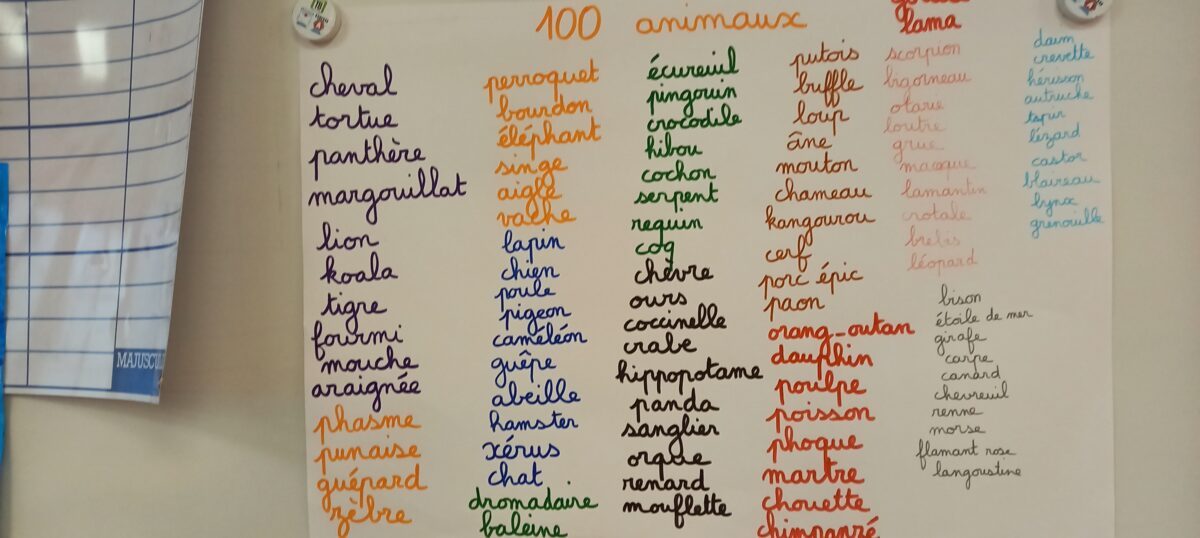 100 animaux
cheval
tortue
panthère
margouillat
lion
koala
tigre
fourmi
mouche
araignée
phasme
punaise
guépard
zèbre
perroquet
bourdon
éléphant
singe
aigle
vache
lapin
chien
poule
pigeon
caméléon
guêpe
abeille
hamster
xérus
chat
dromadaire
baleine
écureuil
pingouin
crocodile
hibou
cochon
serpent
requin
coq
chèvre
ours
coccinelle
crabe
hippopotame
panda
sanglier
orque
renard
mouflette
putois
buffle
loup
âne
mouton
chameau
kangourou
cerf
porc épic
paon
orang-outan
dauphin
poulpe
poisson
phoque
martre
chouette
chimpanzé
lama
scorpion
bigorneau
otarie
loutre
grue
macaque
lamantin
crotale
brebis
léopard
bison
étoile de mer
girafe
carpe
canard
chevreuil
renne
morse
flamant rose
langoustine
daim
crevette
hérisson
autruche
tapir
lézard
castor
blaireau
lynx
grenouille